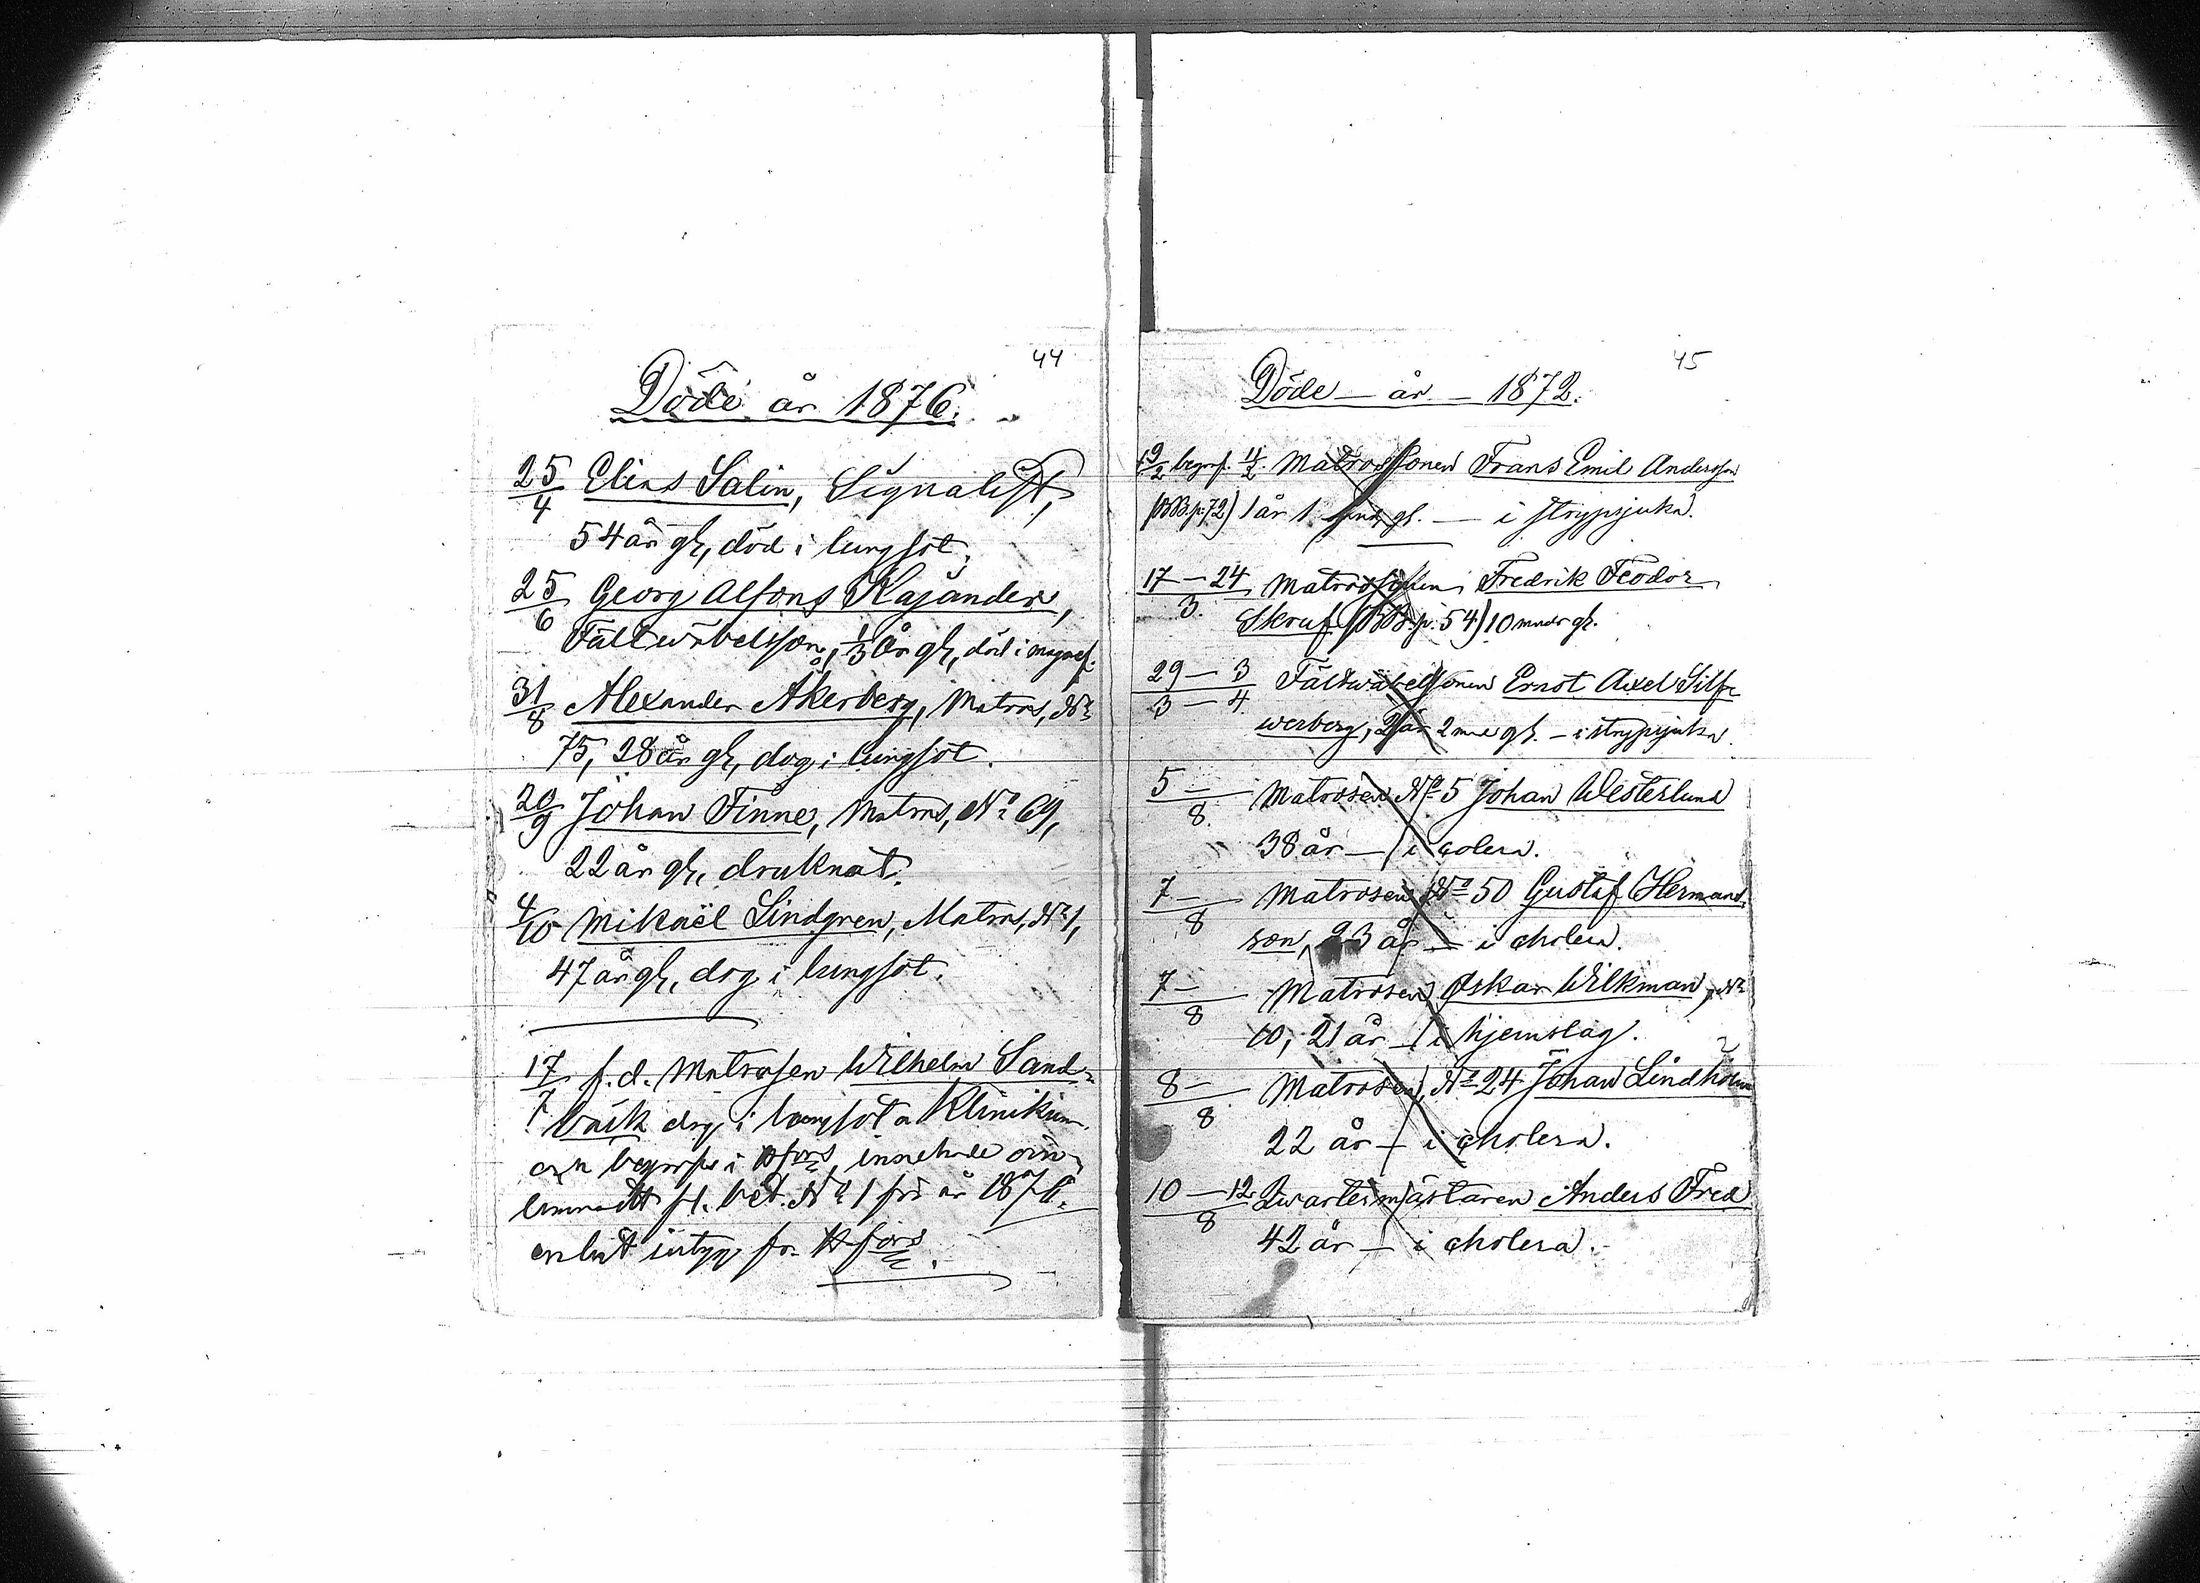 44
Döde år 1876.
25/4 Elias Salin, Signalist,
54 år gl, död i lungsot.
25/6 Georg Alfons Kajander,
Fältwäbelsson, 1/3 år gl, död i magnef.
31/8 Alexander Åkerberg, Matros, No
75, 28 år gl, dog i lungsot.
20/9 Johan Finne, Matros, No 69,
22 år gl, druknat.
4/10 Mikaël Lindgren, Matros, No 1,
47 år gl, dog i lungsot.
17/7 f.d. Matrosen Wilhelm Sand-
bäck dog i lungsot a Klinikum
och begrofs i Hfors, innehade
bet. No 1 för år 1876.
enligt intyg fr. Hfors.
45
Döde — år — 1872.
9/2 begrf. 11/2. Matrossonen Frans Emil Andersson
(BB. p. 72) 1 år 1 gl. — i strypsjuka.
17 — 24/3. Matrossonen Fredrik Feodor
Skruf (BB. p. 54) 10 mnder gl.
29/3 — 3/4 Fältwäbelsonen Ernst Axel Silf
werberg, 2 år 2 mne gl. — i strypsjuka.
5 —/8. Matrosen No 5 Johan Westerlund
38 år — i colera.
7 —/8 Matrosen No 50 Gustaf Hermans
son, 23 år — i cholera.
7 —/8 Matrosen Oskar Wilkman, No
60, 21 år — i hjernslag.
8 —/8 Matrosen, No 24 Johan Lindholm
22 år — i cholera.
10 — 12/8 Qwartermästaren Anders Fred
42 år — i cholera.